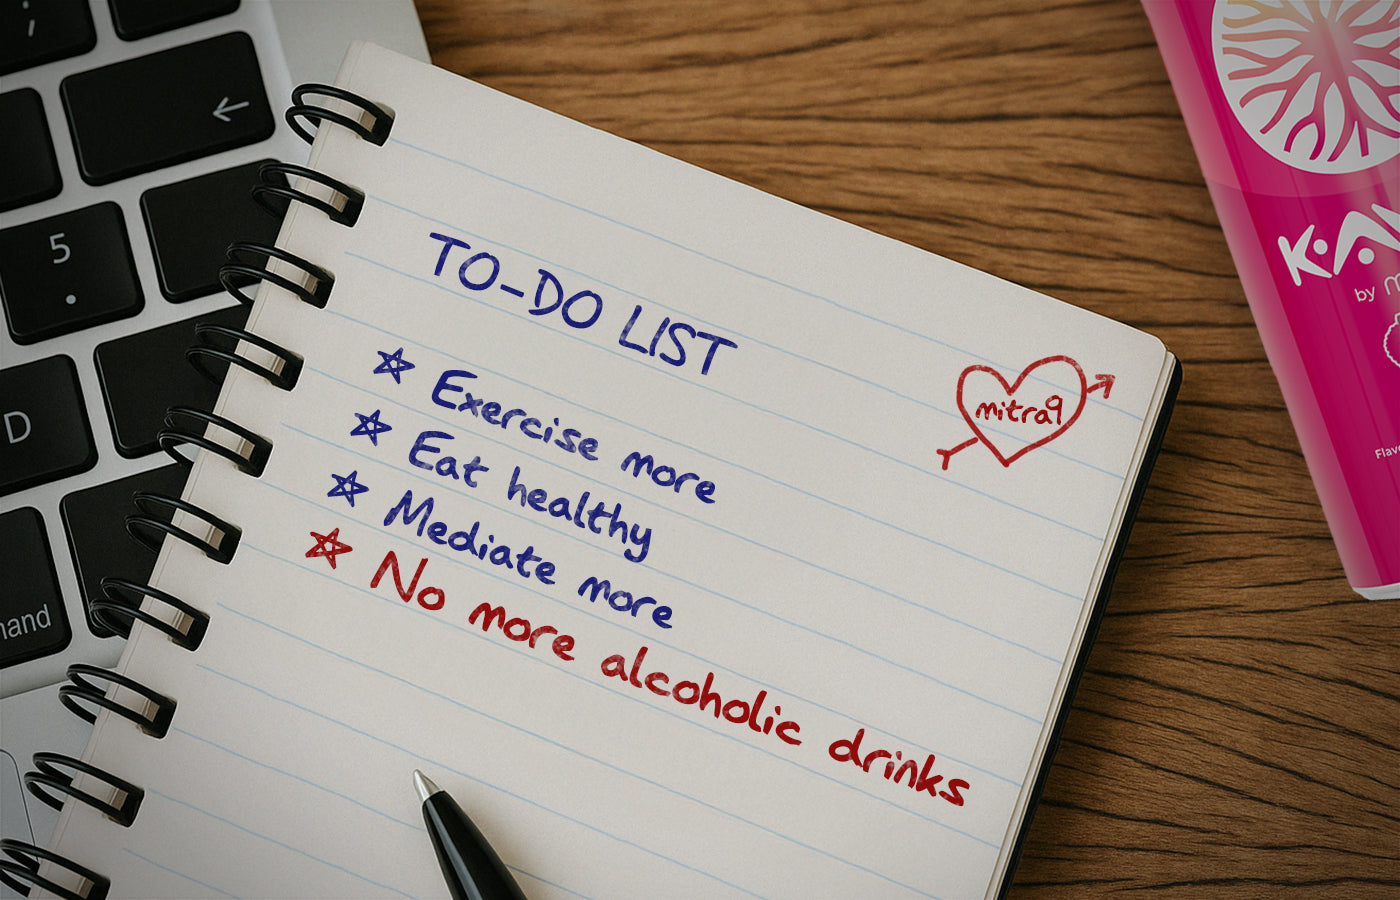 ←
5
D
TO-DO LIST
☆ Exercise more
☆ Eat healthy
☆ Mediate more
☆ No more alcoholic drinks
mitra9
by